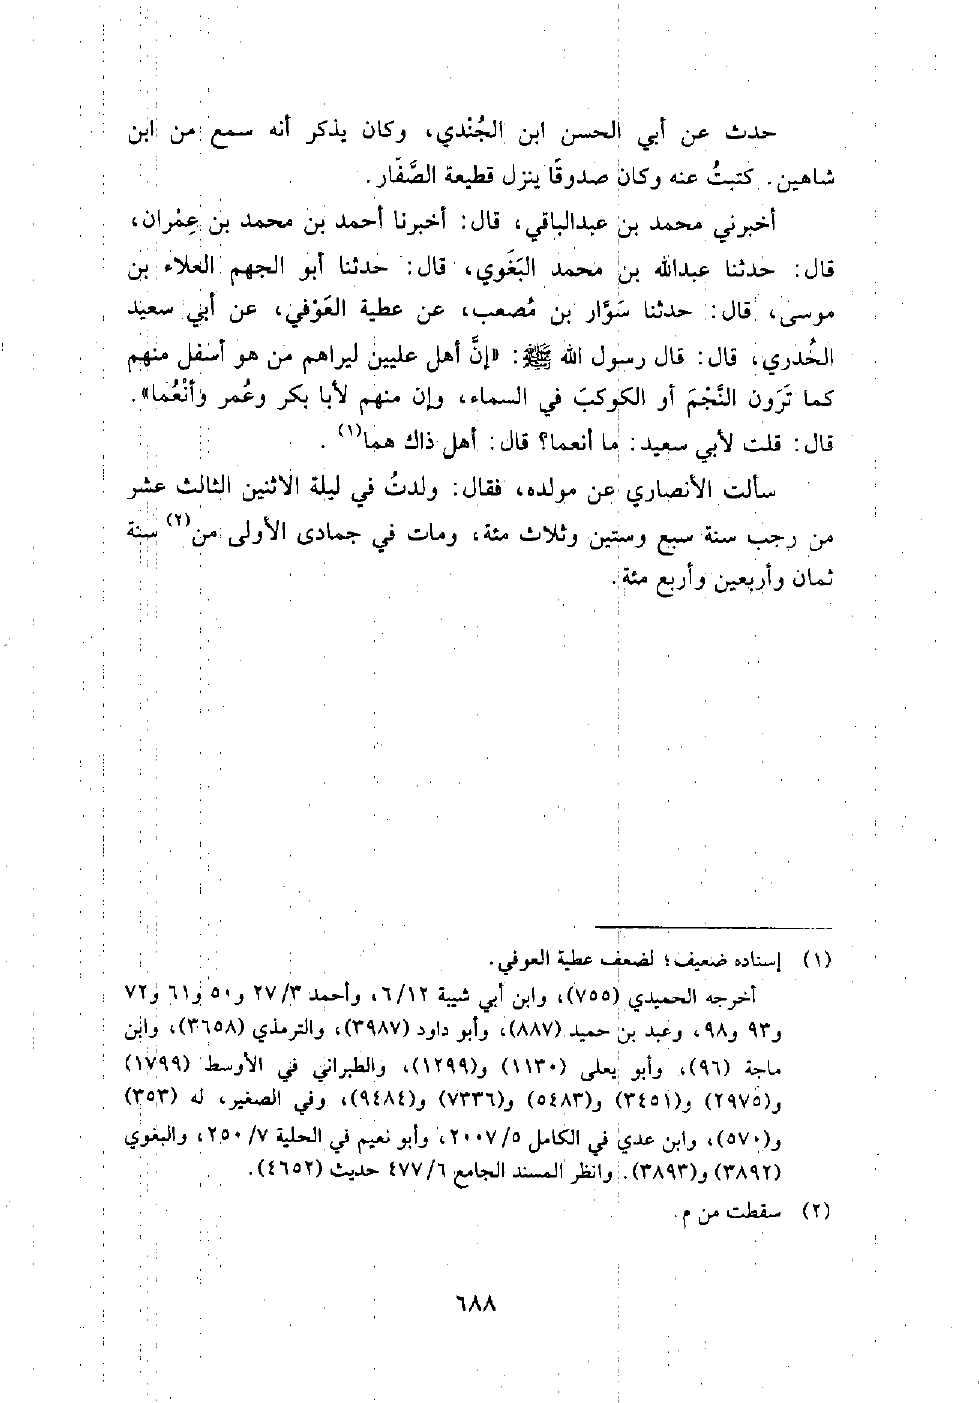 حدث عن أبي الحسن ابن الجُنْدي، وكان يذكر أنه سمع من ابن
شاهين. كتبتُ عنه وكان صدوقًا ينزل قطيعة الصَّفَّار.
أخبرني محمد بن عبدالباقي، قال: أخبرنا أحمد بن محمد بن عِمْران،
قال: حدثنا عبدالله بن محمد البَغَوي، قال: حدثنا أبو الجهم العلاء بن
موسى، قال: حدثنا سَوَّار بن مُصعب، عن عطية العَوْفي، عن أبي سعيد
الخُدري، قال: قال رسول الله ﷺ: «إنَّ أهل عليين ليراهم من هو أسفل منهم
كما تَرَون النَّجْمَ أو الكوكبَ في السماء، وإن منهم لأبا بكر وعُمر وأنْعُما».
قال: قلت لأبي سعيد: ما أنعما؟ قال: أهل ذاك هما(١).
سألت الأنصاري عن مولده، فقال: ولدتُ في ليلة الاثنين الثالث عشر
من رجب سنة سبع وستين وثلاث مئة، ومات في جمادى الأولى من(٢) سنة
ثمان وأربعين وأربع مئة.
(١) إسناده ضعيف؛ لضعف عطية العوفي.
أخرجه الحميدي (٧٥٥)، وابن أبي شيبة ٦/١٢، وأحمد ٢٧/٣ و٥٠ و٦١ و٧٢
و٩٣ و٩٨، وعبد بن حميد (٨٨٧)، وأبو داود (٣٩٨٧)، والترمذي (٣٦٥٨)، وابن
ماجة (٩٦)، وأبو يعلى (١١٣٠) و(١٢٩٩)، والطبراني في الأوسط (١٧٩٩)
و(٢٩٧٥) و(٣٤٥١) و(٥٤٨٣) و(٧٣٣٦) و(٩٤٨٤)، وفي الصغير، له (٣٥٣)
و(٥٧٠)، وابن عدي في الكامل ٢٠٠٧/٥، وأبو نعيم في الحلية ٢٥٠/٧، والبغوي
(٣٨٩٢) و(٣٨٩٣). وانظر المسند الجامع ٤٧٧/٦ حديث (٤٦٥٢).
(٢) سقطت من م.
٦٨٨